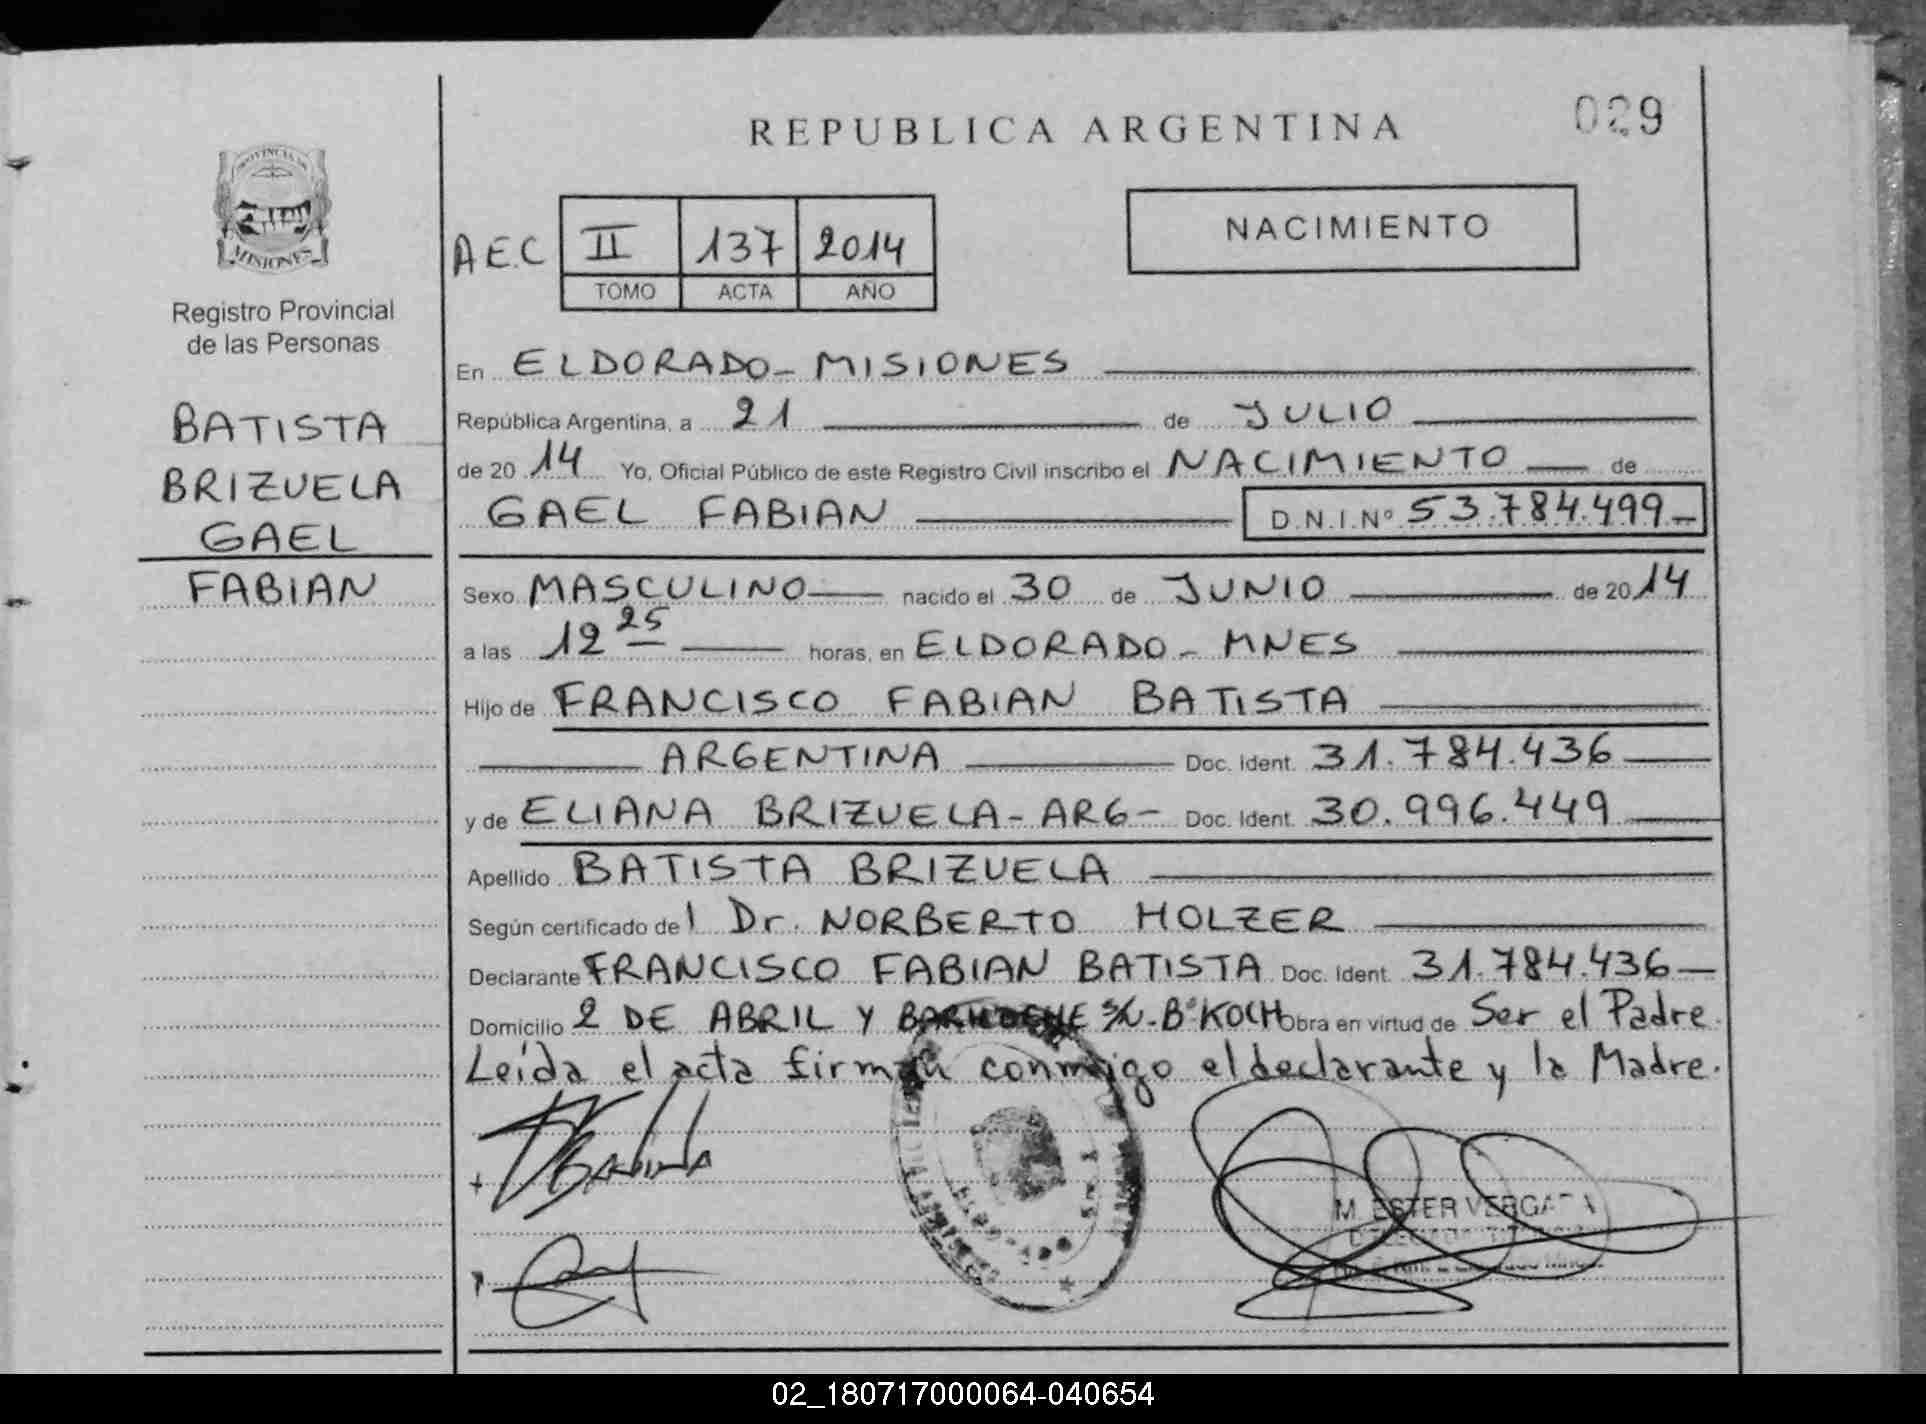 REPUBLICA ARGENTINA
029
PROVINCIA DE
MISIONES
Registro Provincial
de las Personas
BATISTA
BRIZUELA
GAEL
FABIAN
A E.C II 137 2014
TOMO ACTA AÑO
NACIMIENTO
En ELDORADO - MISIONES
República Argentina, a 21 de JULIO
de 20 14 Yo, Oficial Público de este Registro Civil inscribo el NACIMIENTO de
GAEL FABIAN D.N.I.Nº 53.784.499-
Sexo MASCULINO nacido el 30 de JUNIO de 20 14
a las 12 25 horas, en ELDORADO - MNES
Hijo de FRANCISCO FABIAN BATISTA
ARGENTINA Doc. Ident. 31.784.436
y de ELIANA BRIZUELA - ARG - Doc. Ident. 30.996.449
Apellido BATISTA BRIZUELA
Según certificado del Dr. NORBERTO HOLZER
Declarante FRANCISCO FABIAN BATISTA Doc. Ident. 31.784.436
Domicilio 2 DE ABRIL Y BARILOCHE S/N. Bº KOCH Obra en virtud de Ser el Padre.
Leída el acta firman conmigo el declarante y la Madre.
M. ESTER VERGARA
02_180717000064-040654